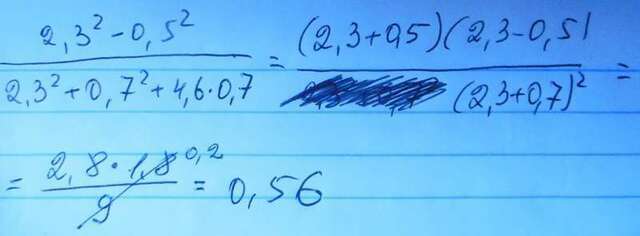 (2,3² - 0,5²) / (2,3² + 0,7² + 4,6·0,7) = (2,3+0,5)(2,3-0,5) / (2,3+0,7)² =
= 2,8·1,8 0,2 / 9 = 0,56